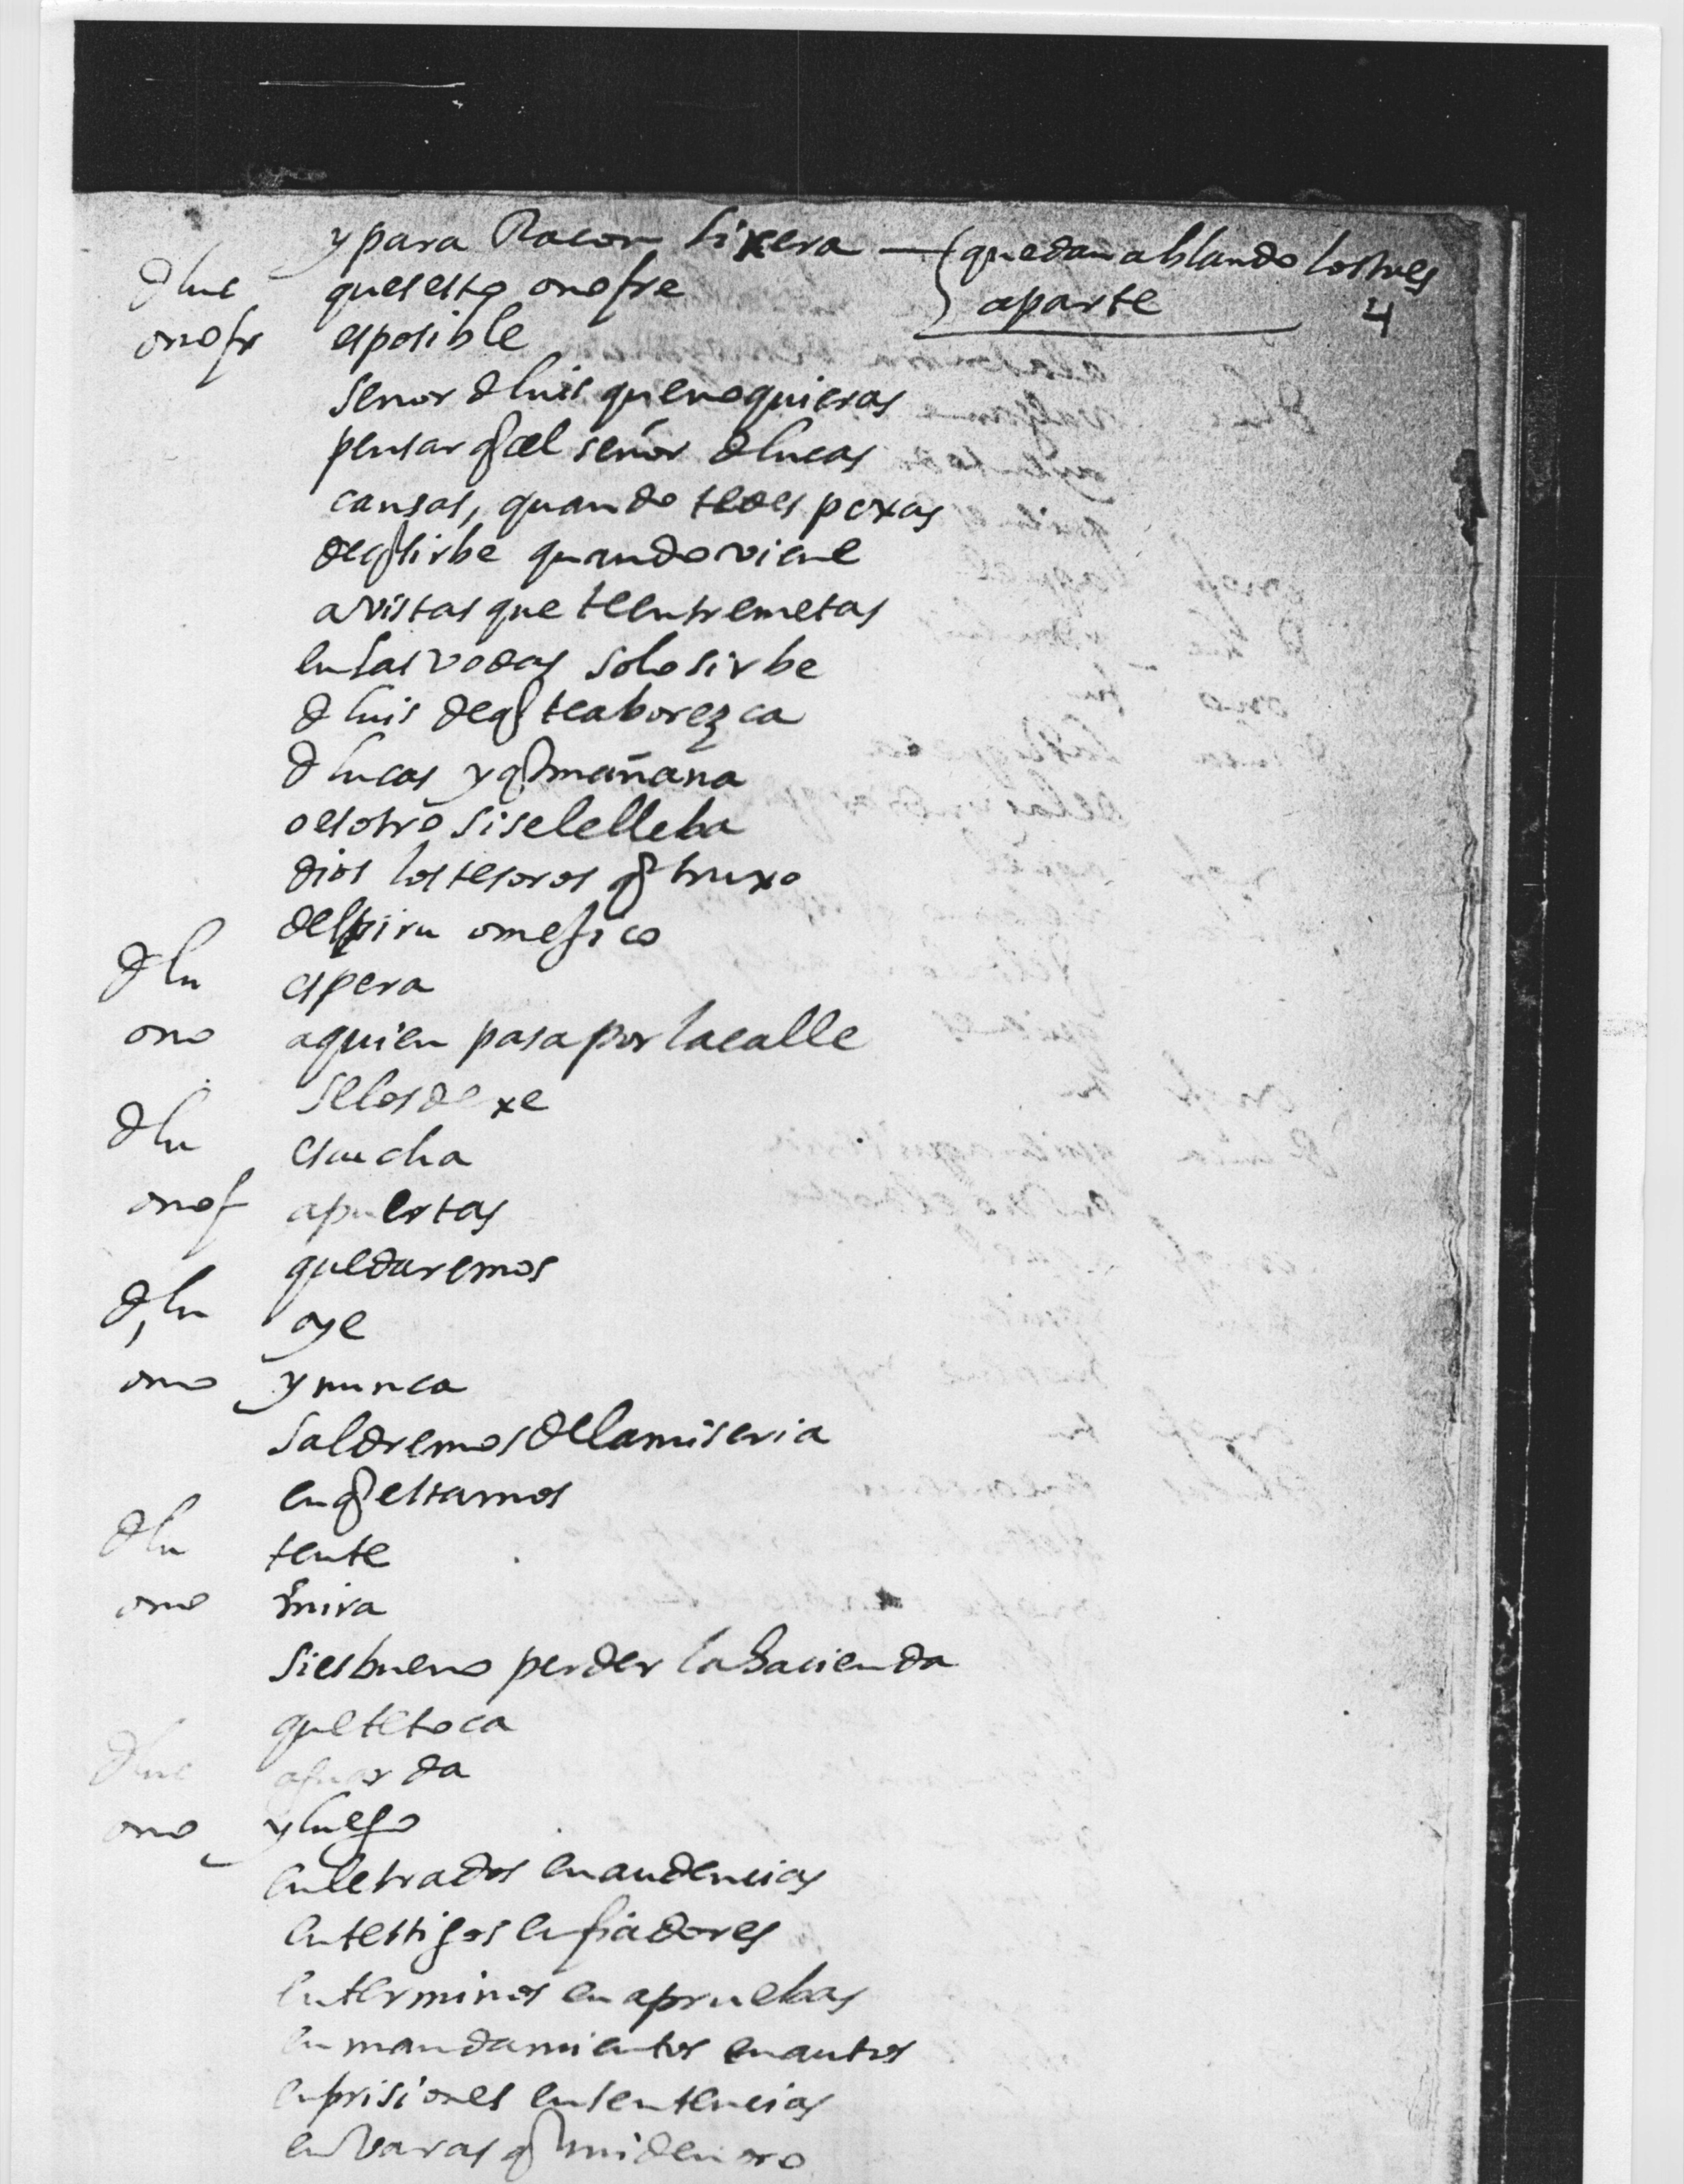 y para Racon lixera — quedan ablando los tres
aparte
4
d luc ques esto onofre
onofr es posible
senor d luis que no quieras
pensar q al señor d lucas
cansas, quando te des pexas
de q sirbe quando viene
a vistas que te entremetas
en las vodas solo sirbe
d luis de q te aborezca
d lucas y q mañana
o esotro si se le lleba
dios los tesoros q truxo
del piru o mesico
d lu espera
ono a quien pasa por la calle
se los dexe
d lu escucha
onof a puertas
quedaremos
d lu oye
ono y nunca
saldremos de la miseria
en q estamos
d lu tente
ono mira
si es bueno perder la hacienda
que te toca
d luc aguarda
ono y luego
en letrados en audencias
en testigos en fiadores
en terminos en apruebas
en mandamientos en autos
en prisiones en sentencias
en varas q miden oro